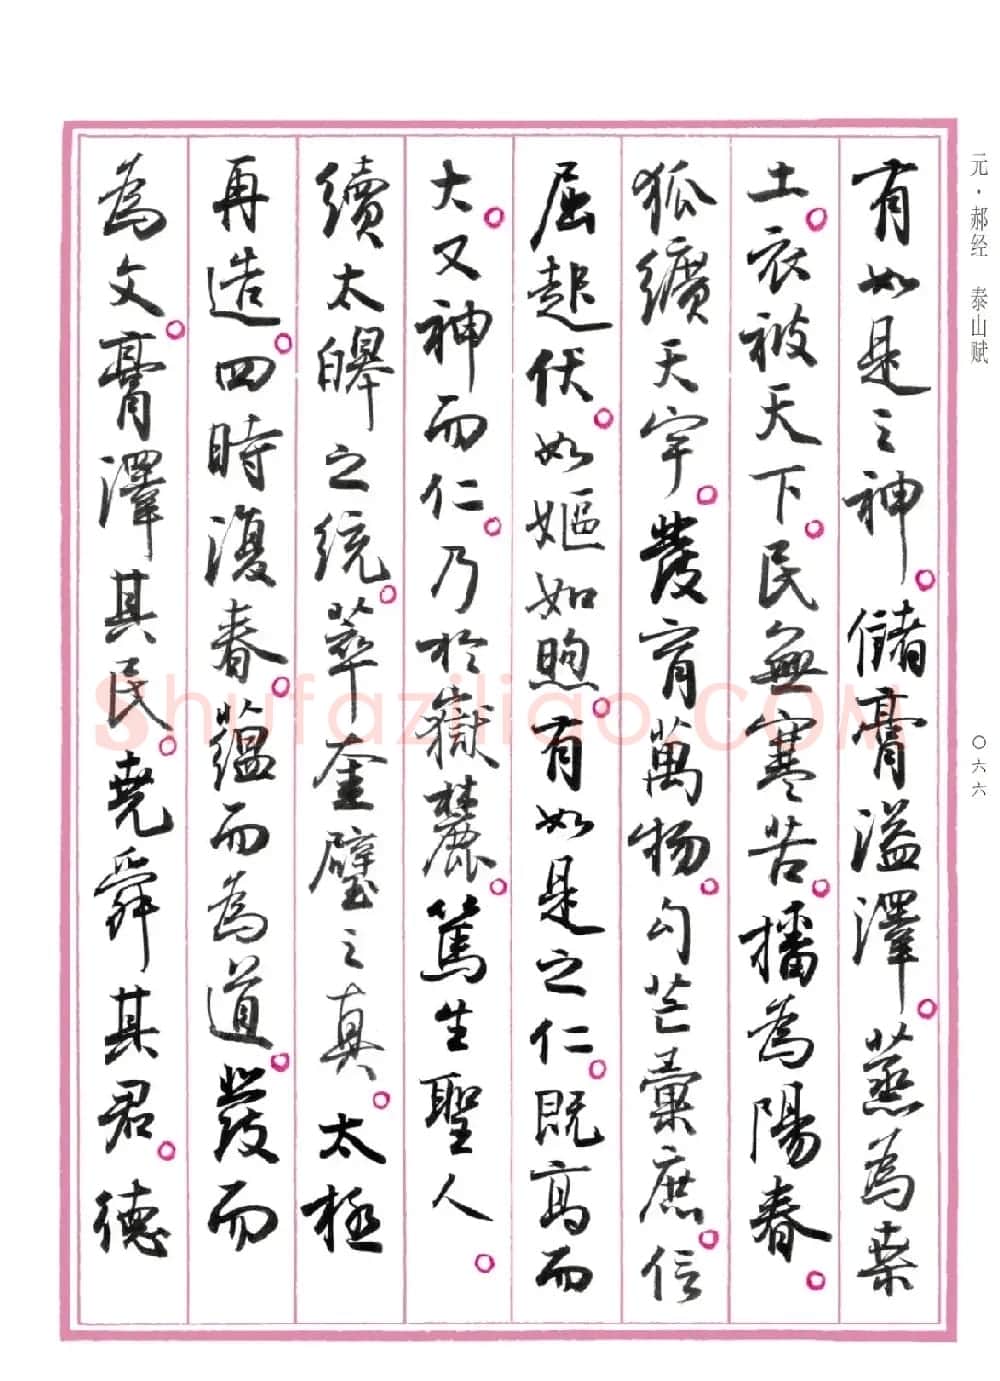 元·郝经 泰山赋
有如是之神。儲膏溢澤。蒸為桒
土。衣被天下。民無寒苦。播為陽春。
狐纊天宇。發育萬物。勾芒彙庶。信
屈起伏。如嫗如煦。有如是之仁。既高而
大。又神而仁。乃於嶽麓。篤生聖人。
續太皞之統。萃奎璧之真。太極
再造。四時復春。蘊而為道。發而
為文。膏澤其民。堯舜其君。德
〇六六
Shufaziliao.COM